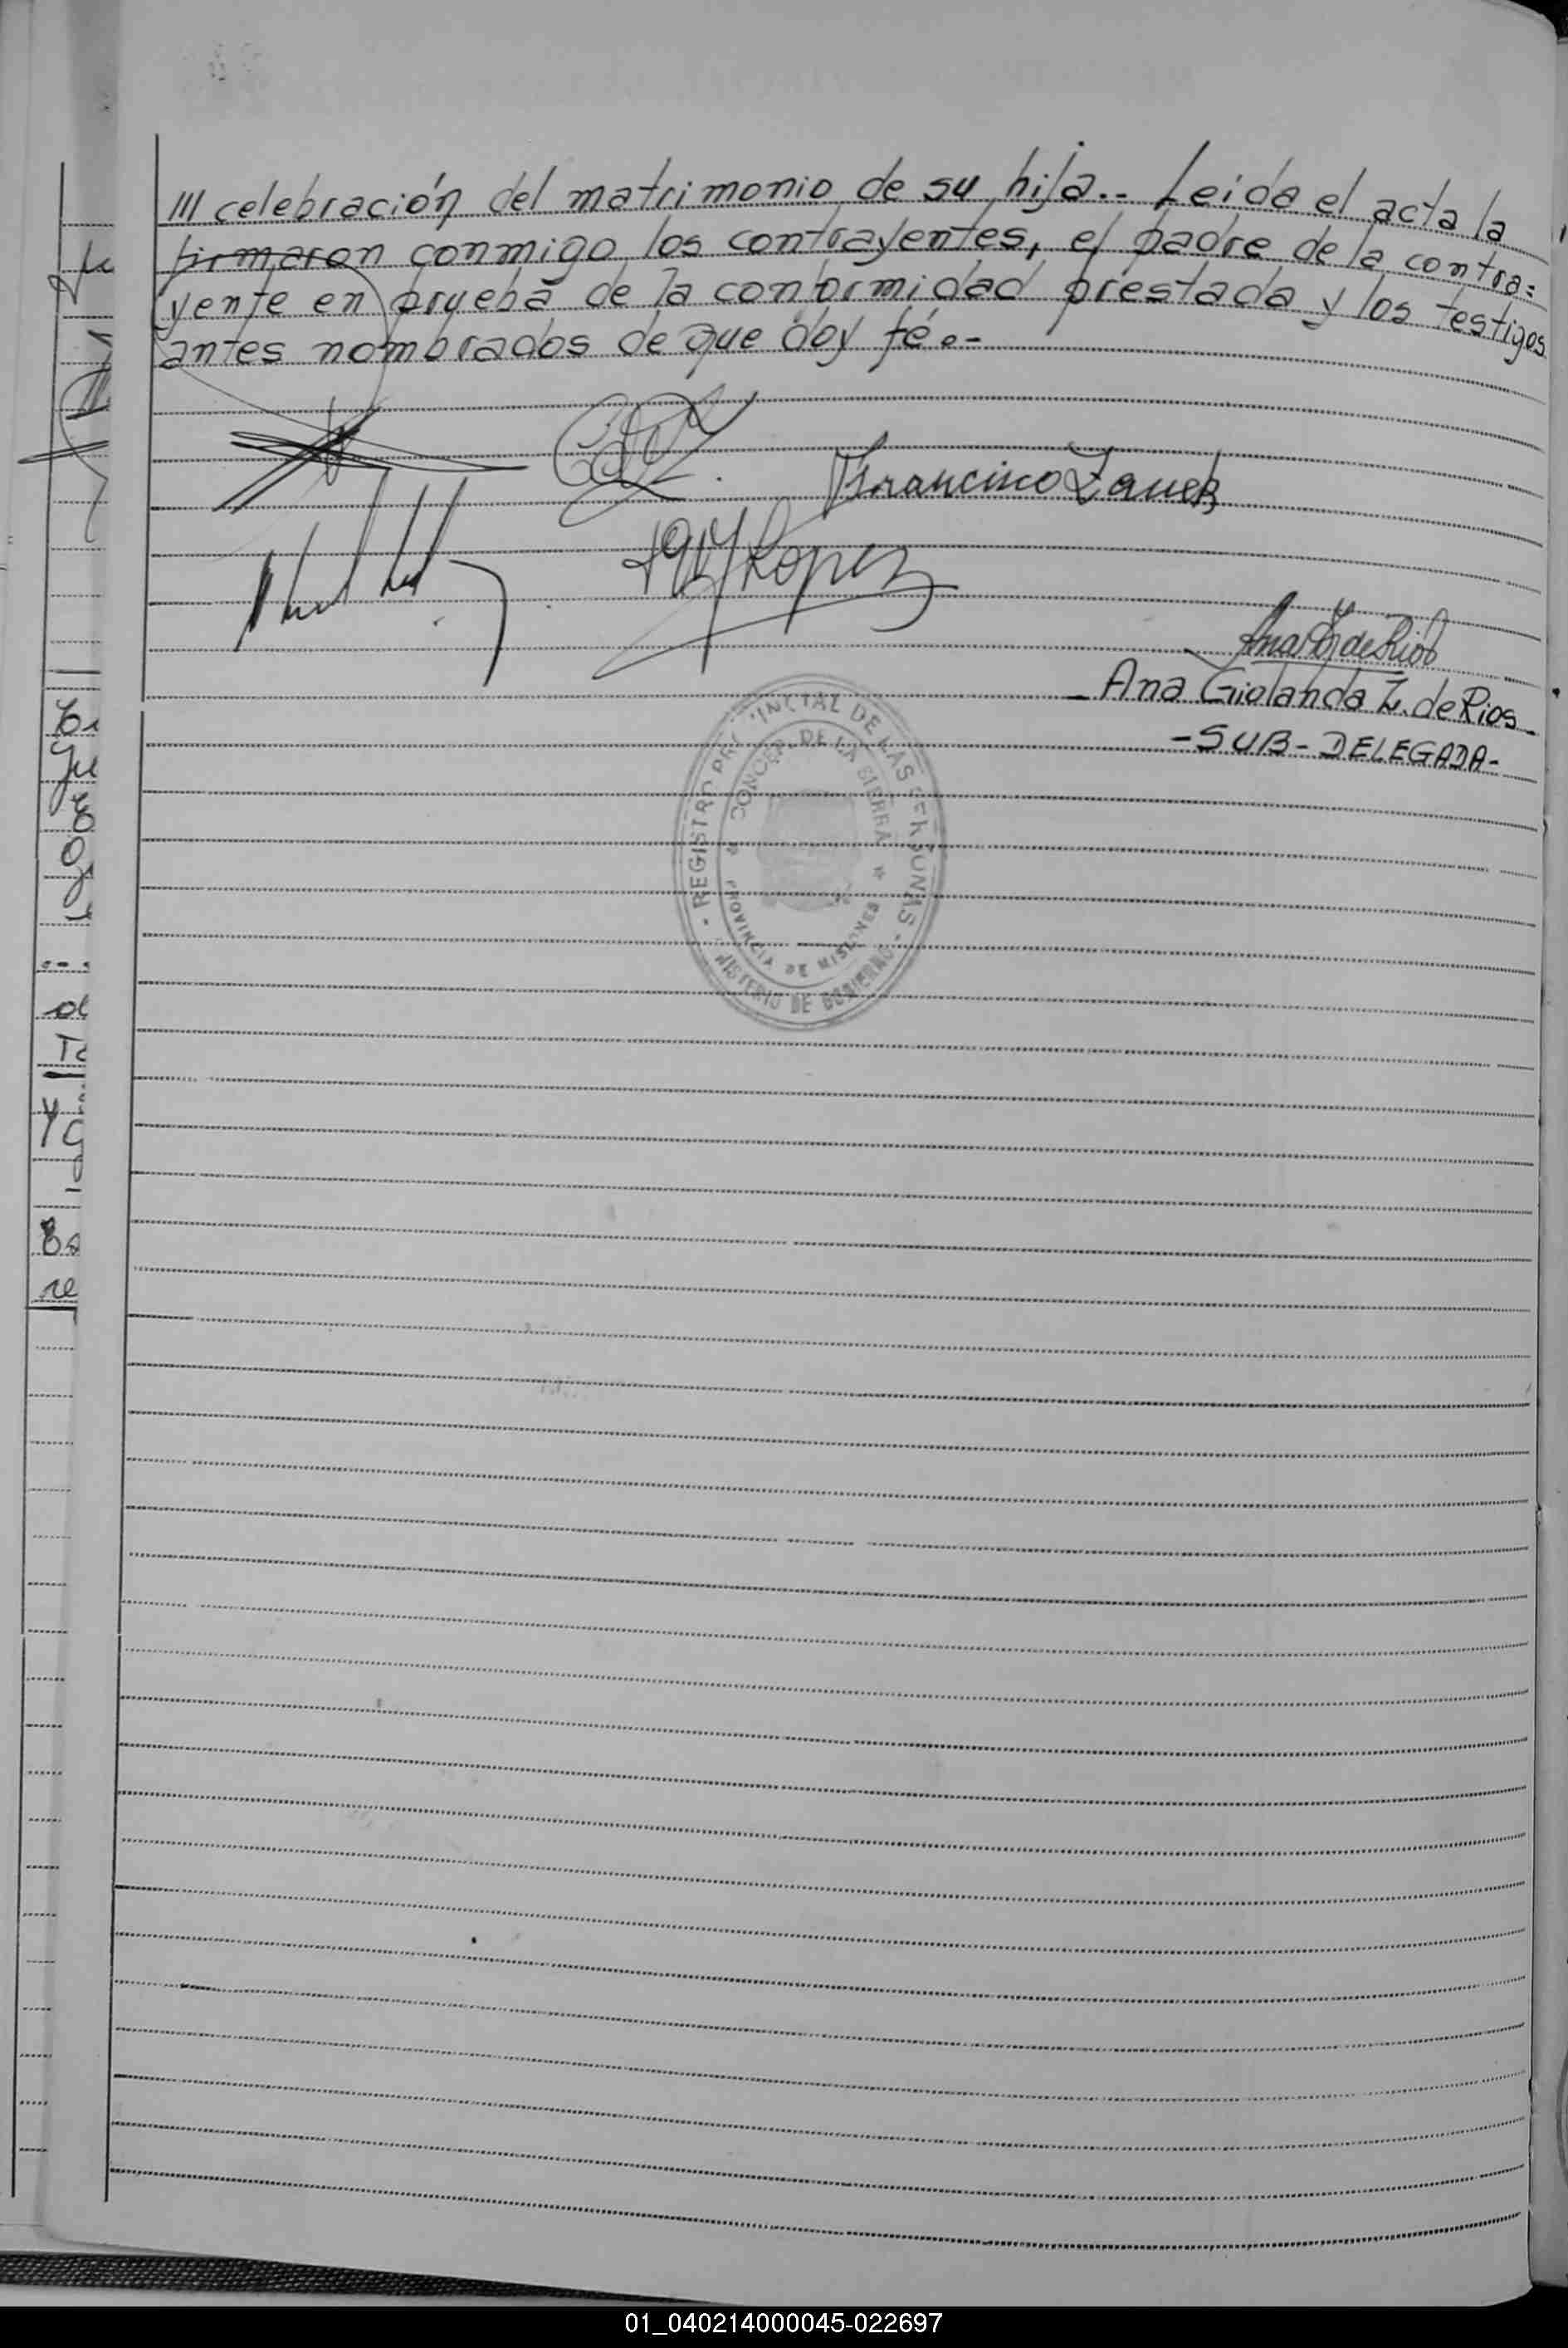 /// celebración del matrimonio de su hija.. Leida el acta la
firmaron conmigo los contrayentes, el padre de la contra=
yente en prueba de la conformidad prestada y los testigos
antes nombrados de que doy fé.-
Francisco
Lopez
Ana Giolanda Z. de Rios
-SUB-DELEGADA-
REGISTRO PROVINCIAL DE LAS PERSONAS
CONCEP. DE LA SIERRA
PROVINCIA DE MISIONES
MINISTERIO DE GOBIERNO
01_040214000045-022697